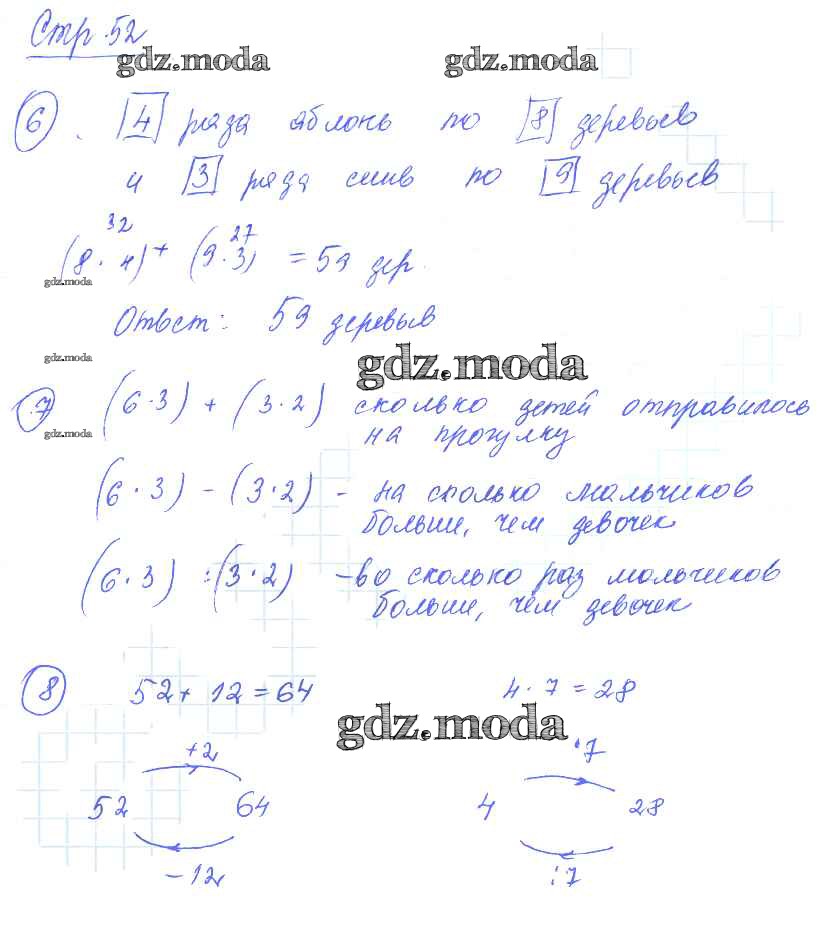 Стр. 52
gdz.moda gdz.moda
6. 4 ряда яблонь по 8 деревьев
и 3 ряда слив по 9 деревьев
32 27
(8 · 4) + (9 · 3) = 59 дер.
gdz.moda
Ответ: 59 деревьев
gdz.moda gdz.moda
7 (6 · 3) + (3 · 2) сколько детей отправилось
gdz.moda на прогулку
(6 · 3) - (3 · 2) - на сколько мальчиков
больше, чем девочек
(6 · 3) : (3 · 2) - во сколько раз мальчиков
больше, чем девочек
8 52 + 12 = 64 4 · 7 = 28
gdz.moda
+2 · 7
52 64 4 28
- 12 : 7